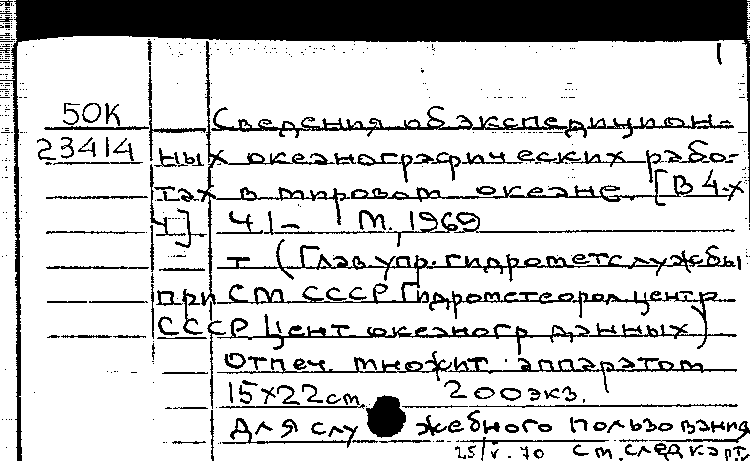 50К
Сведения об экспедицион-
23414
ных океанографических рабо-
тах в мировом океане. [В 4-х
ч] Ч.1- М., 1969
т (Глав.упр. гидрометслужбы
при СМ СССР. Гидрометеорол центр
СССР. Цент океаногр данных)
Отпеч. множит. аппаратом
15х22 см. 200 экз.
Для служебного пользования
25/V.70 см. след карт